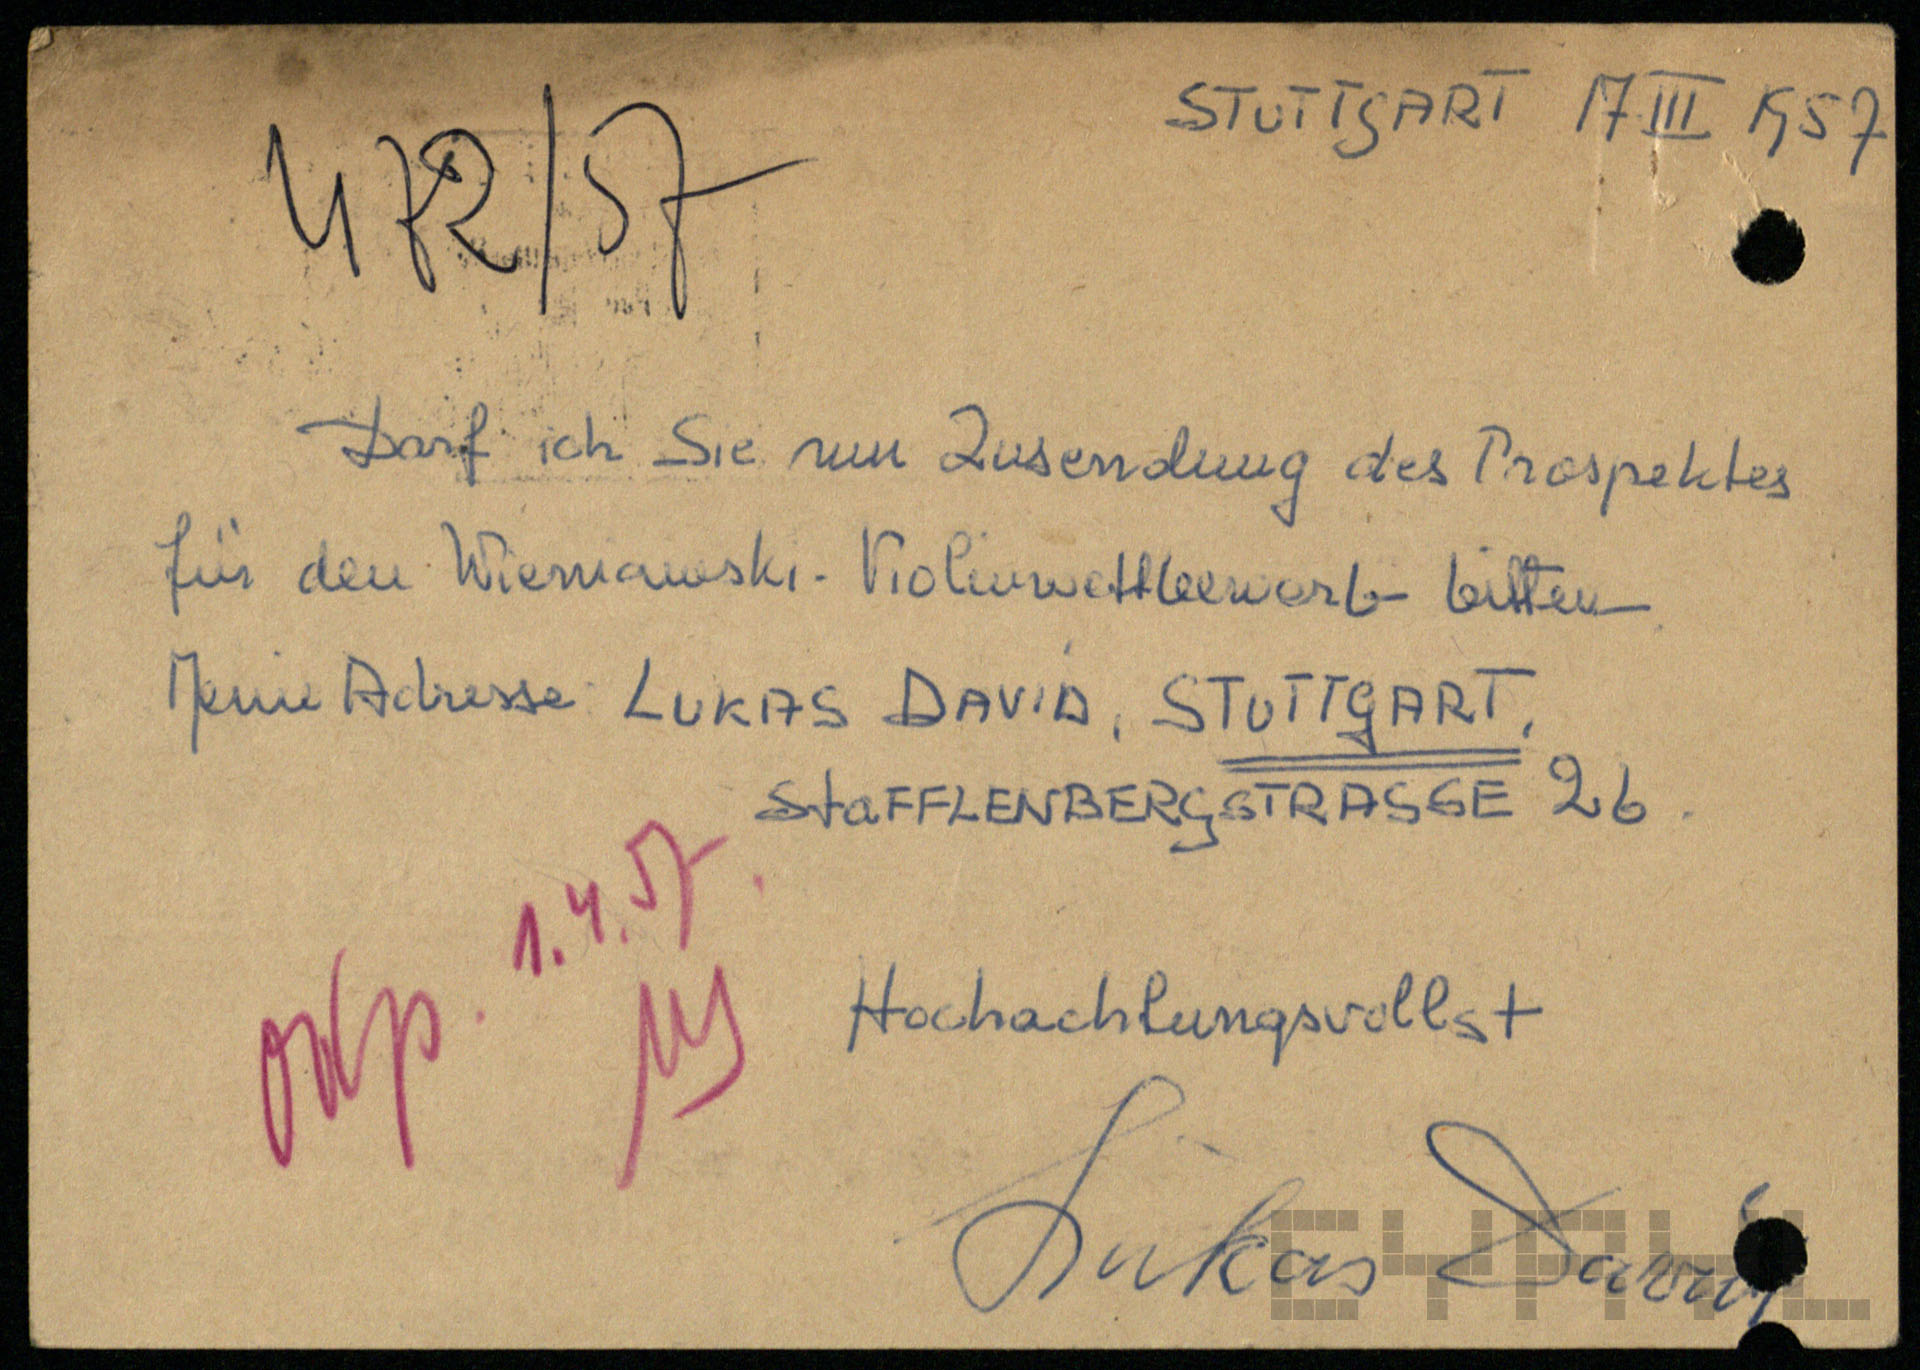 STUTTGART 17 III 1957
472/57
Darf ich Sie um Zusendung des Prospektes
für den Wieniawski-Violinwettbewerb bitten
Meine Adresse: LUKAS DAVID, STUTTGART,
StaFFLENBERGSTRASSE 26.
odp. 1.4.57.
Hochachtungsvollst
Lukas David